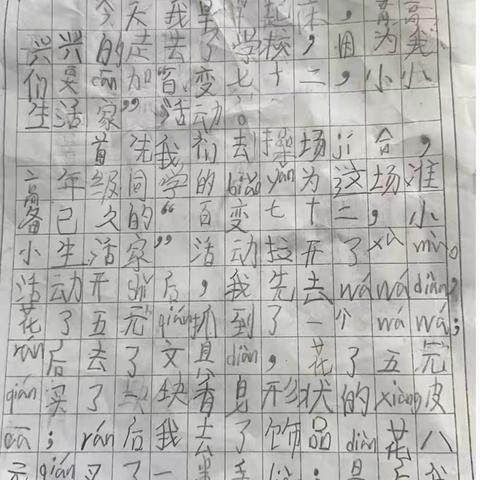 今天我早早起床，高高
兴兴的走去了学校，因为我
们要cān加百变七十二，小小
生活家”活动。
首先我们去操场jí合，
高年级同学的biǎo yǎn为这场准
备已久的“百变七十二，小
小生活家”活动拉开了xù mù。
活动开shǐ后，我先去wá wá diàn，
花了五元qián抓到了一个wá wá；
rán后去了文具diàn，花了五元
qián买了一块看见形状的xiàng皮
cā；rán后我去了饰品diàn花八
元qián买了一